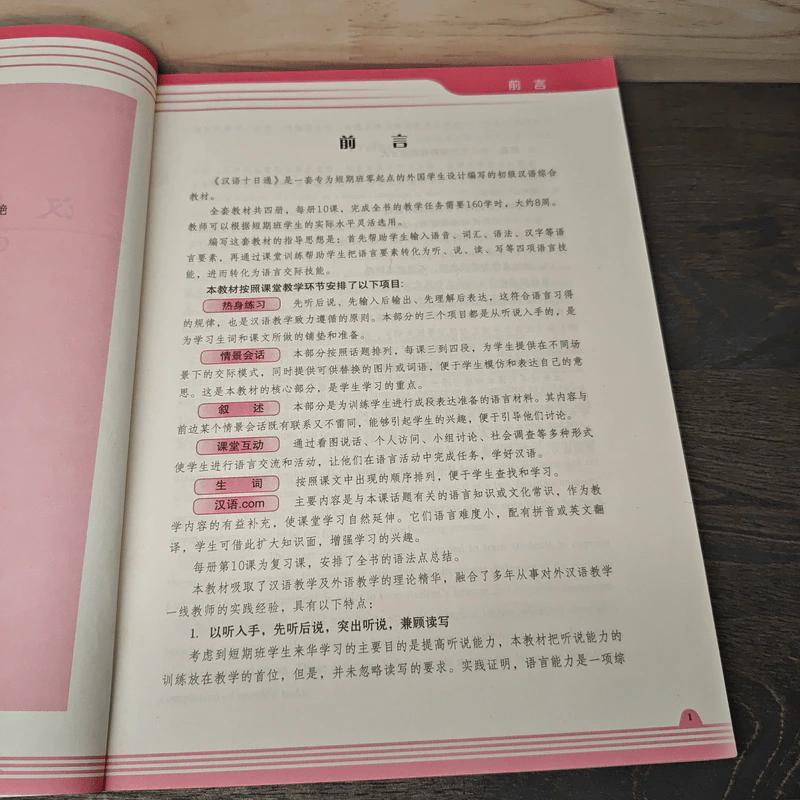 前 言
前 言
《汉语十日通》是一套专为短期班零起点的外国学生设计编写的初级汉语综合
教材。
全套教材共四册,每册10课,完成全书的教学任务需要160学时,大约8周。
教师可以根据短期班学生的实际水平灵活选用。
编写这套教材的指导思想是:首先帮助学生输入语音、词汇、语法、汉字等语
言要素,再通过课堂训练帮助学生把语言要素转化为听、说、读、写等四项语言技
能,进而转化为语言交际技能。
本教材按照课堂教学环节安排了以下项目:
热身练习 先听后说、先输入后输出、先理解后表达,这符合语言习得
的规律,也是汉语教学致力遵循的原则。本部分的三个项目都是从听说入手的,是
为学习生词和课文所做的铺垫和准备。
情景会话 本部分按照话题排列,每课三到四段,为学生提供在不同场
景下的交际模式,同时提供可供替换的图片或词语,便于学生模仿和表达自己的意
思。这是本教材的核心部分,是学生学习的重点。
叙 述 本部分是为训练学生进行成段表达准备的语言材料。其内容与
前边某个情景会话既有联系又不雷同,能够引起学生的兴趣,便于引导他们讨论。
课堂互动 通过看图说话、个人访问、小组讨论、社会调查等多种形式
使学生进行语言交流和活动,让他们在语言活动中完成任务,学好汉语。
生 词 按照课文中出现的顺序排列,便于学生查找和学习。
汉语.com 主要内容是与本课话题有关的语言知识或文化常识,作为教
学内容的有益补充,使课堂学习自然延伸。它们语言难度小,配有拼音或英文翻
译,学生可借此扩大知识面,增强学习的兴趣。
每册第10课为复习课,安排了全书的语法点总结。
本教材吸取了汉语教学及外语教学的理论精华,融合了多年从事对外汉语教学
一线教师的实践经验,具有以下特点:
1. 以听入手,先听后说,突出听说,兼顾读写
考虑到短期班学生来华学习的主要目的是提高听说能力,本教材把听说能力的
训练放在教学的首位,但是,并未忽略读写的要求。实践证明,语言能力是一项综
1